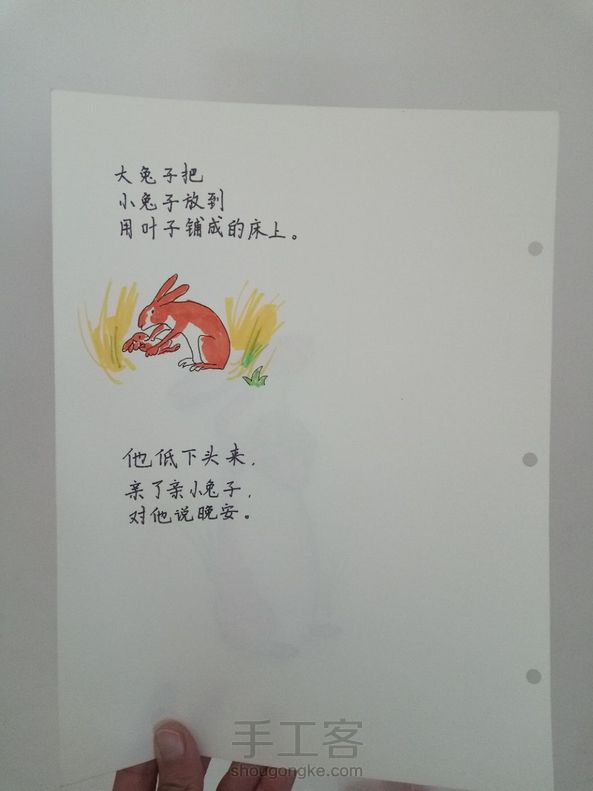 大兔子把
小兔子放到
用叶子铺成的床上。
他低下头来，
亲了亲小兔子，
对他说晚安。
手工客
shougongke.com